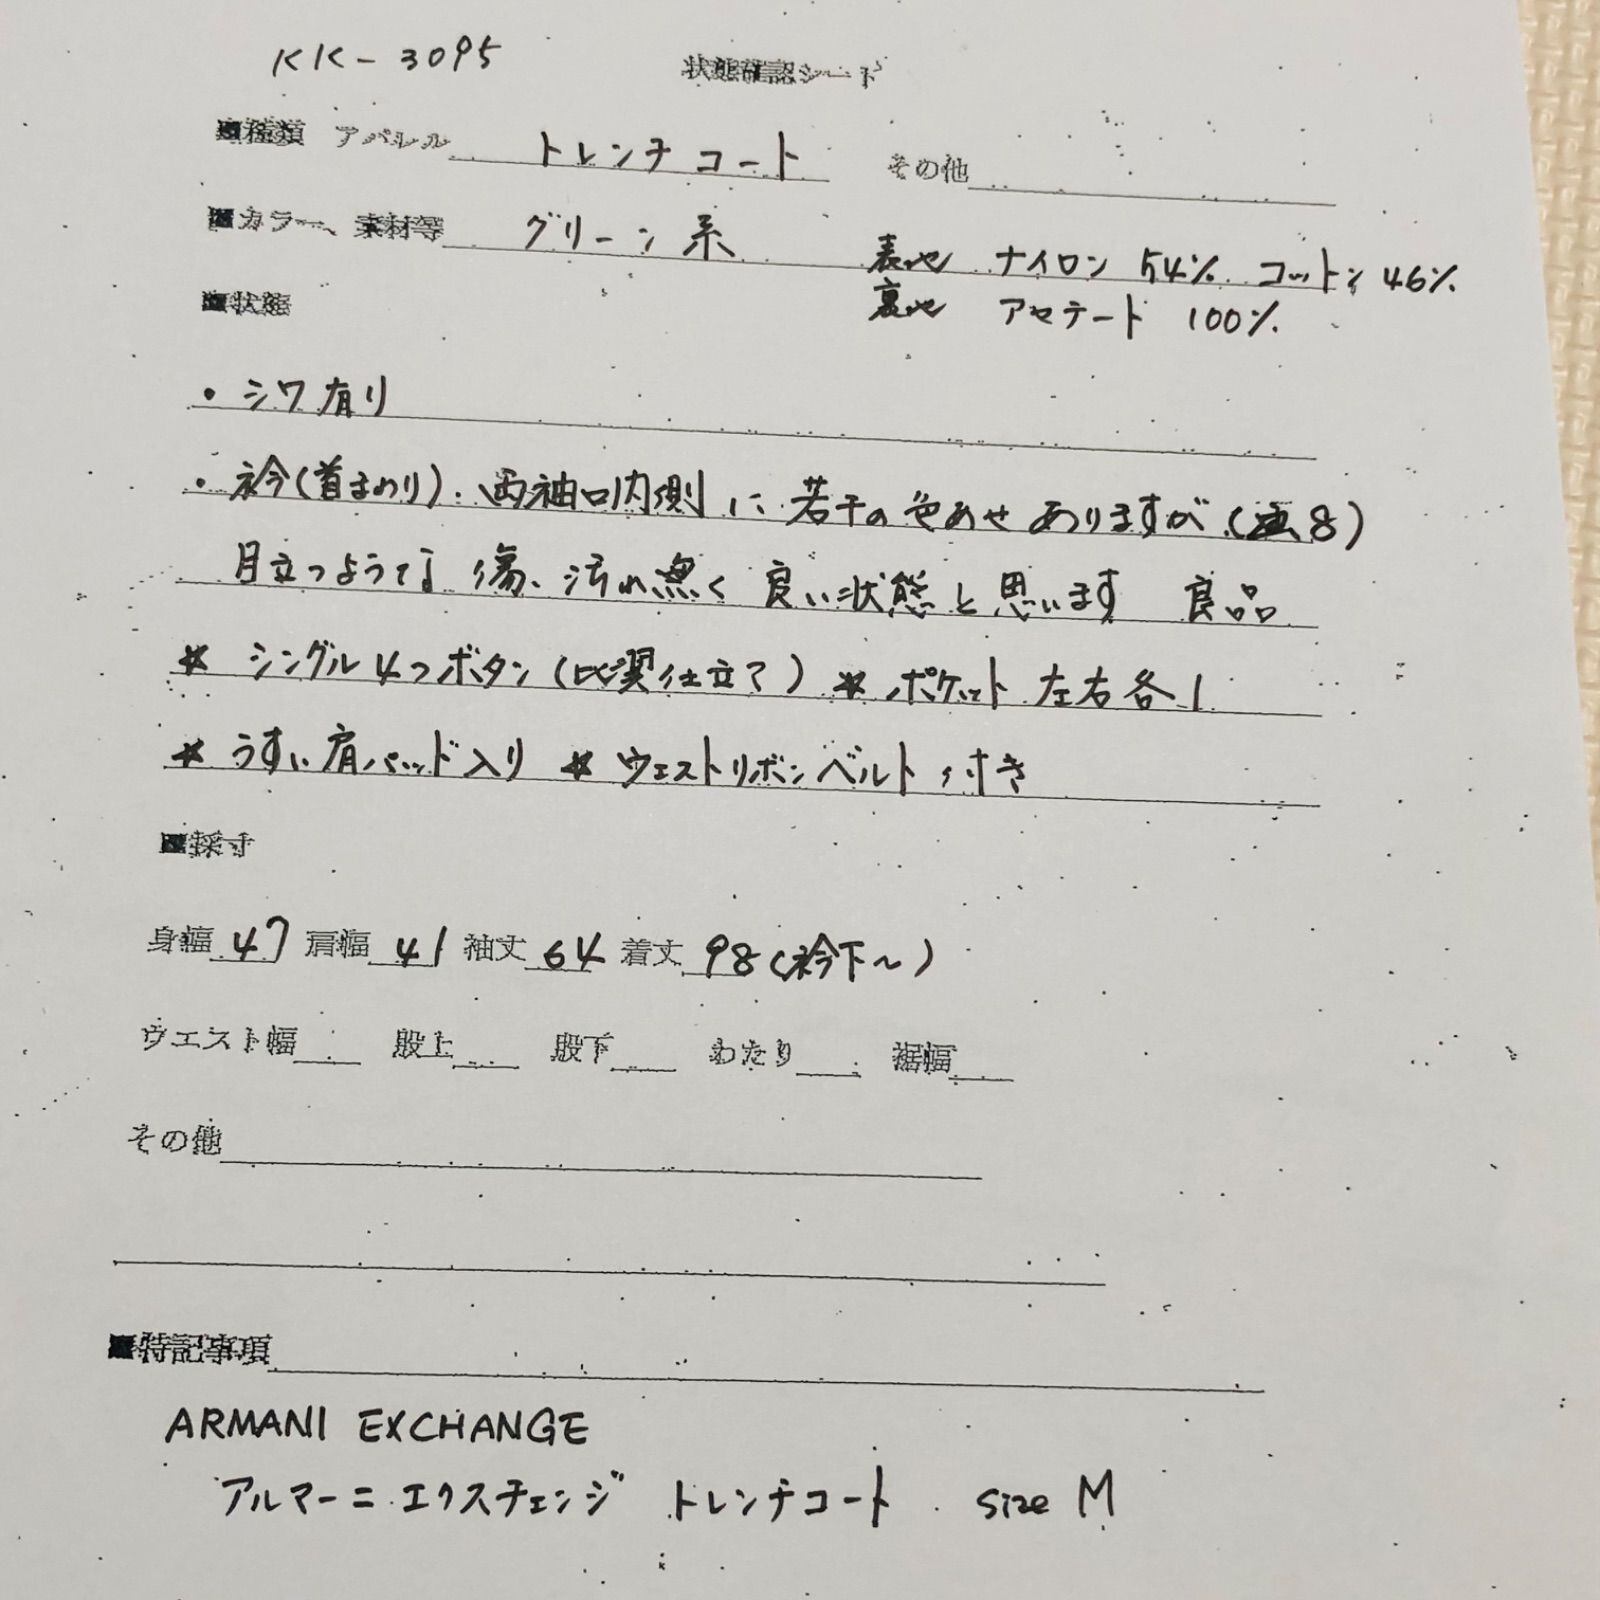 KK-3095 状態確認シート
■種類 アパレル トレンチコート その他
■カラー、素材等 グリーン系 表地 ナイロン 54% コットン 46%
裏地 アセテート 100%
■状態
・シワ有り
・衿(首まわり)、両袖口内側に 若干の色あせありますが(画8)
目立つような 傷、汚れ無く 良い状態と思います 良品
* シングル4つボタン(比翼仕立て) * ポケット 左右各1
* うすい肩パッド入り * ウエストリボンベルト付き
■採寸
身幅 47 肩幅 41 袖丈 64 着丈 98(衿下~)
ウエスト幅 股上 股下 わたり 裾幅
その他
■特記事項
ARMANI EXCHANGE
アルマーニ エクスチェンジ トレンチコート size M